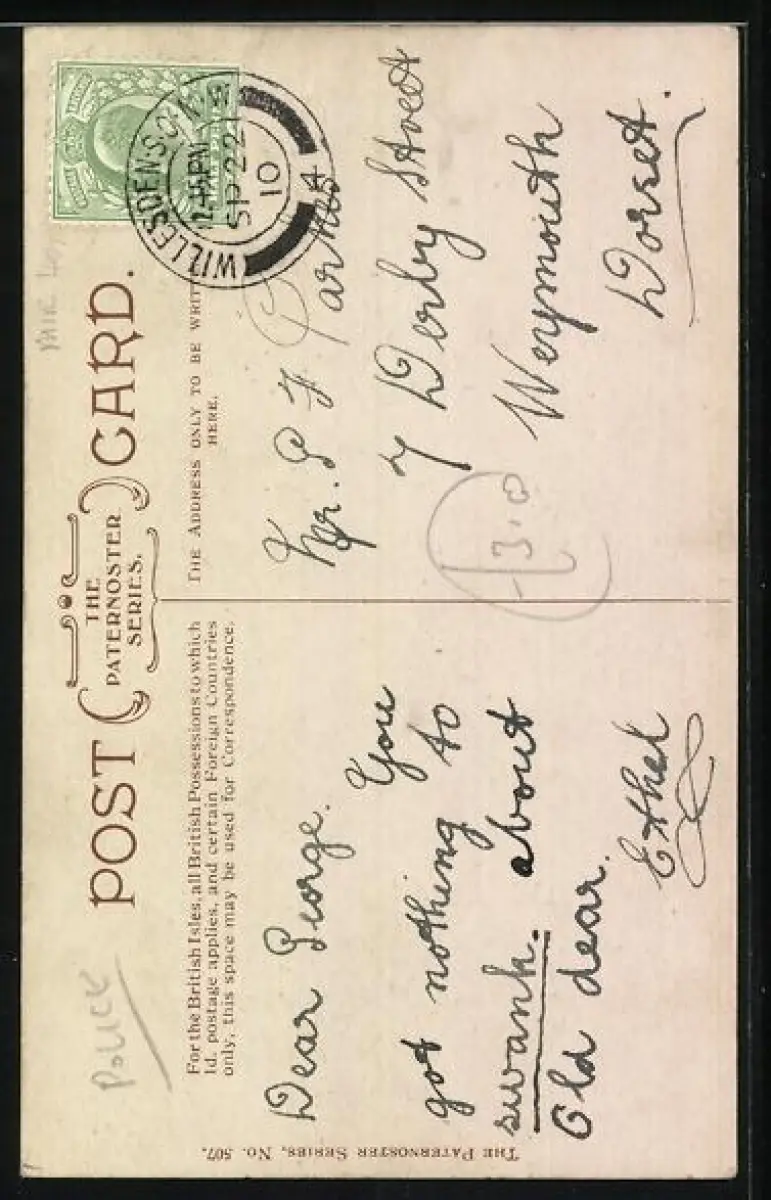 POST CARD.
THE
PATERNOSTER
SERIES.
For the British Isles, all British Possessions to which
1d. postage applies, and certain Foreign Countries
only, this space may be used for Correspondence.
THE ADDRESS ONLY TO BE WRIT
HERE.
Police
Dear George.
You
got nothing to
swank. about
Old dear.
Ethel
WILLESDEN S.O.
12.45 PM
SP 22
10
Mr. G F Parnes
7 Derby Street
Weymouth
Dorset.
THE PATERNOSTER SERIES, No. 507.